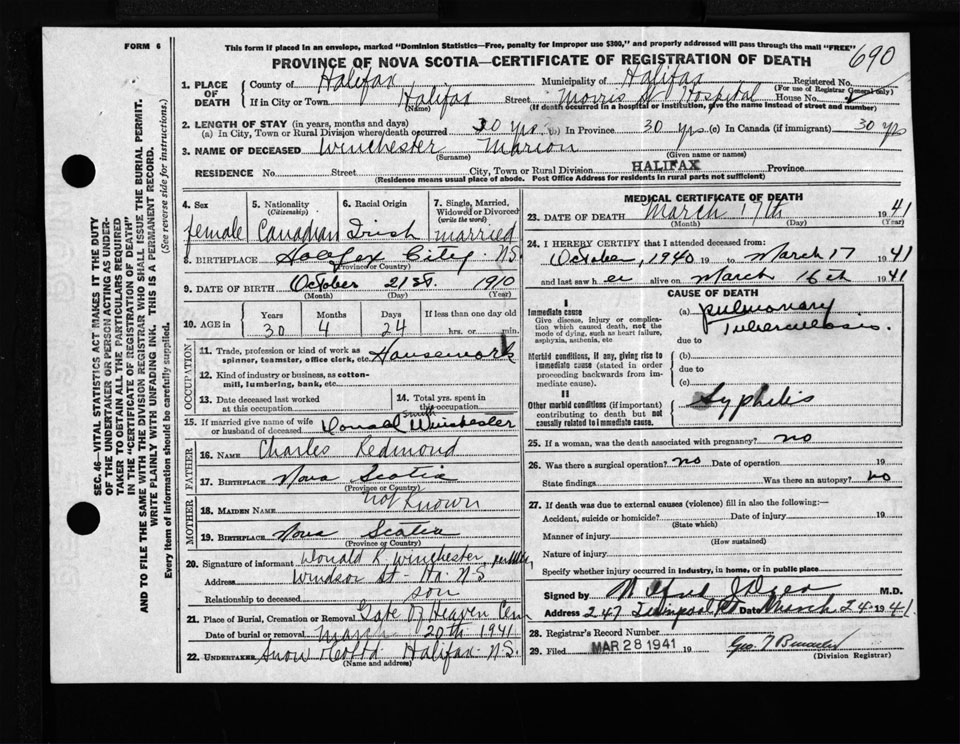 FORM 6
This form if placed in an envelope, marked "Dominion Statistics—Free, penalty for improper use $300," and properly addressed will pass through the mail "FREE"
690
PROVINCE OF NOVA SCOTIA—CERTIFICATE OF REGISTRATION OF DEATH
1. PLACE OF DEATH
County of Halifax Municipality of Halifax Registered No.
(For use of Registrar General only)
If in City or Town Halifax Street Morris St Hospital House No.
(Name) (If death occurred in a hospital or institution, give the name instead of street and number)
2. LENGTH OF STAY (in years, months and days)
(a) In City, Town or Rural Division where death occurred 30 yrs. (b) In Province 30 yrs (c) In Canada (if immigrant) 30 yrs
3. NAME OF DECEASED Winchester Marion
(Surname) (Given name or names)
RESIDENCE No. Street City, Town or Rural Division HALIFAX Province
(Residence means usual place of abode. Post Office Address for residents in rural parts not sufficient)
SEC. 46—VITAL STATISTICS ACT MAKES IT THE DUTY
OF THE UNDERTAKER OR PERSON ACTING AS UNDER-
TAKER TO OBTAIN ALL THE PARTICULARS REQUIRED
IN THE "CERTIFICATE OF REGISTRATION OF DEATH"
AND TO FILE THE SAME WITH THE DIVISION REGISTRAR WHO SHALL ISSUE THE BURIAL PERMIT.
WRITE PLAINLY WITH UNFADING INK. THIS IS A PERMANENT RECORD.
Every item of information should be carefully supplied. (See reverse side for instructions.)
4. Sex female
5. Nationality (Citizenship) Canadian
6. Racial Origin Irish
7. Single, Married, Widowed or Divorced (write the word) married
8. BIRTHPLACE Halifax City. N.S.
(Province or Country)
9. DATE OF BIRTH October 21st. 1910
(Month) (Day) (Year)
10. AGE in Years 30 Months 4 Days 24 If less than one day old hrs. or min.
OCCUPATION
11. Trade, profession or kind of work as spinner, teamster, office clerk, etc. Housework
12. Kind of industry or business, as cotton-mill, lumbering, bank, etc.
13. Date deceased last worked at this occupation
14. Total yrs. spent in this occupation
15. If married give name of wife or husband of deceased Donald Smith Winchester
FATHER
16. NAME Charles Redmond
17. BIRTHPLACE Nova Scotia
(Province or Country)
MOTHER
18. MAIDEN NAME not known
19. BIRTHPLACE Nova Scotia
(Province or Country)
20. Signature of informant Donald R Winchester,
Address Windsor St - Hx. N.S
Relationship to deceased son
21. Place of Burial, Cremation or Removal Gate Of Heaven Cem
Date of burial or removal March 20th 1941
22. UNDERTAKER Snow & Co Ltd Halifax N.S.
(Name and address)
MEDICAL CERTIFICATE OF DEATH
23. DATE OF DEATH March 17th 1941
(Month) (Day) (Year)
24. I HEREBY CERTIFY that I attended deceased from:
October, 1940 19 to March 17 1941
and last saw her alive on March 16th 1941
CAUSE OF DEATH
I
Immediate cause
Give disease, injury or complication which caused death, not the mode of dying, such as heart failure, asphyxia, asthenia, etc
(a) Pulmonary Tuberculosis.
due to
Morbid conditions, if any, giving rise to immediate cause (stated in order proceeding backwards from immediate cause).
(b)
due to
(c)
II
Other morbid conditions (if important) contributing to death but not causally related to immediate cause.
Syphilis
25. If a woman, was the death associated with pregnancy? no
26. Was there a surgical operation? no Date of operation 19
State findings Was there an autopsy? no
27. If death was due to external causes (violence) fill in also the following:
Accident, suicide or homicide? Date of injury 19
(State which)
Manner of injury
(How sustained)
Nature of injury
Specify whether injury occurred in industry, in home, or in public place
Signed by M.D.
Address 247 Date March 24 1941.
28. Registrar's Record Number
29. Filed MAR 28 1941 19
(Division Registrar)